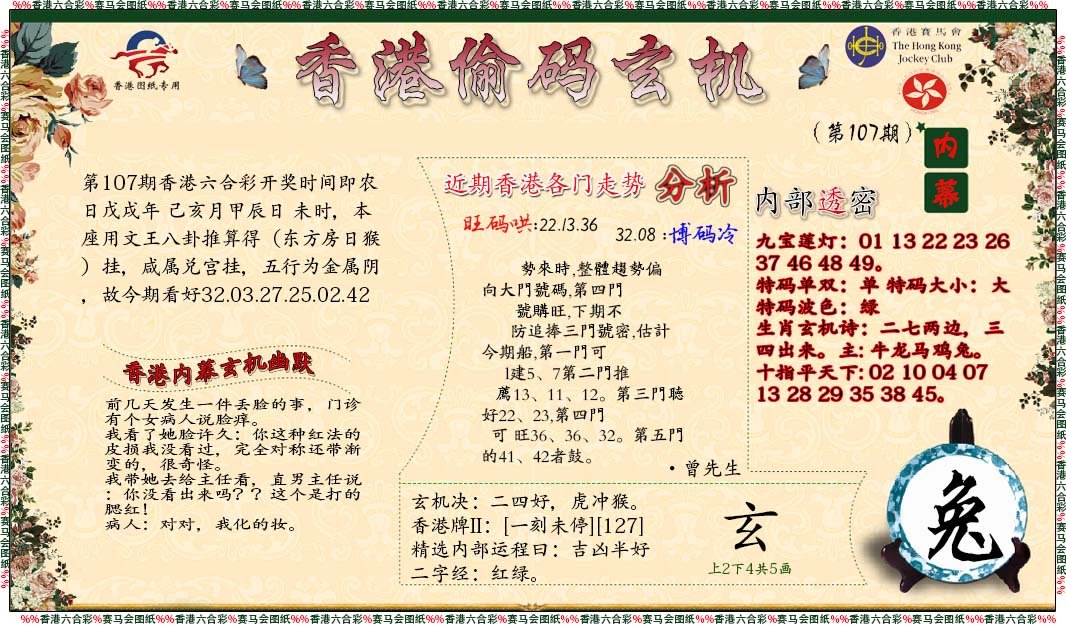 %%香港六合彩%赛马会图纸%%香港六合彩%赛马会图纸%%香港六合彩%赛马会图纸%%香港六合彩%赛马会图纸%%香港六合彩%赛马会图纸%%香港六合彩%%
香港图纸专用
香港偷码玄机
香港賽馬會
The Hong Kong
Jockey Club
(第107期)
内
幕
第107期香港六合彩开奖时间即农
日戊戌年 己亥月甲辰日 未时，本
座用文王八卦推算得（东方房日猴
）挂，咸属兑宫挂，五行为金属阴
，故今期看好32.03.27.25.02.42
香港内幕玄机幽默
前几天发生一件丢脸的事，门诊
有个女病人说脸痒。
我看了她脸许久：你这种红法的
皮损我没看过，完全对称还带渐
变的，很奇怪。
我带她去给主任看，直男主任说
：你没看出来吗？？这个是打的
腮红！
病人：对对，我化的妆。
近期香港各门走势 分析
旺码哄:22.13.36
32.08 :博码冷
勢來時,整體趨勢偏
向大門號碼,第四門
號購旺,下期不
防追捧三門號密,估計
今期船,第一門可
1建5、7第二門推
薦13、11、12。第三門聴
好22、23,第四門
可 旺36、36、32。第五門
的41、42者鼓。
·曾先生
内部透密
九宝莲灯：01 13 22 23 26
37 46 48 49。
特码单双：单 特码大小：大
特码波色：绿
生肖玄机诗：二七两边，三
四出来。主: 牛龙马鸡兔。
十指平天下: 02 10 04 07
13 28 29 35 38 45。
玄机决：二四好，虎冲猴。
香港牌II：[一刻未停][127]
精选内部运程曰：吉凶半好
二字经：红绿。
玄
上2下4共5画
兔
%%香港六合彩%赛马会图纸%%香港六合彩%赛马会图纸%%香港六合彩%赛马会图纸%%香港六合彩%赛马会图纸%%香港六合彩%赛马会图纸%%香港六合彩%%